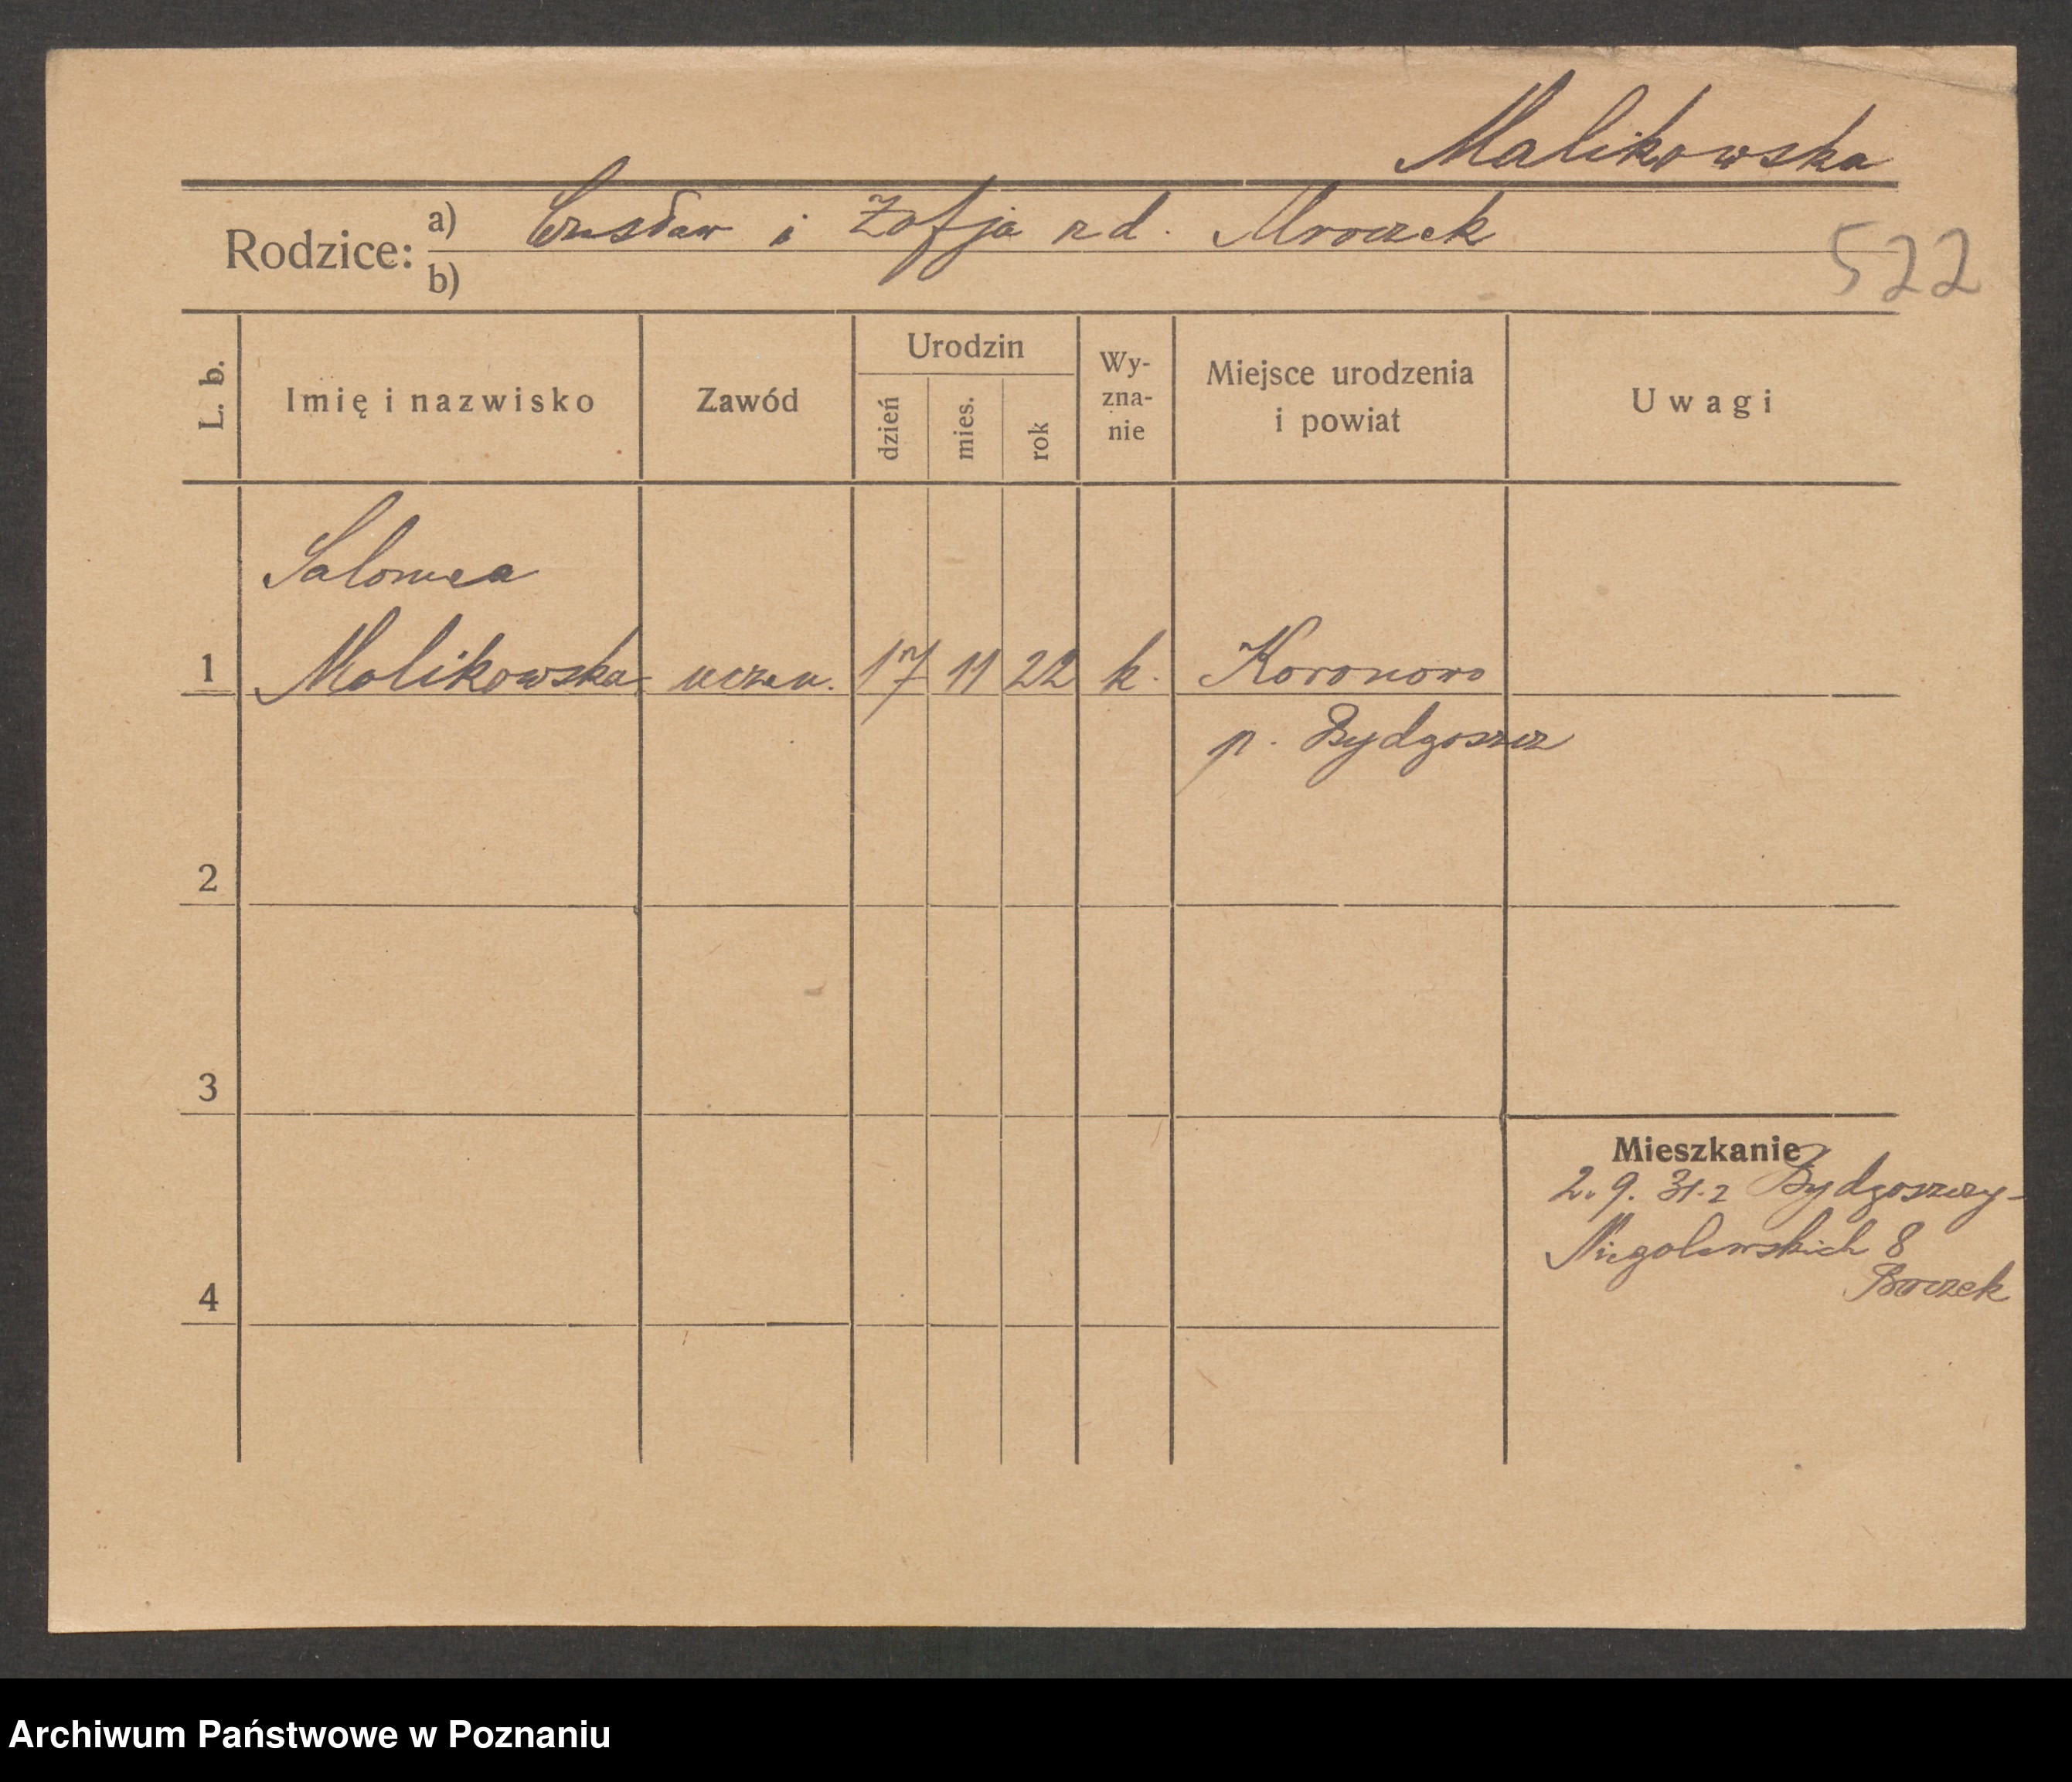 Malikowska
Rodzice: a) Czesław i Zofja rd. Mroczek
b)
522
L. b. Imię i nazwisko Zawód Urodzin dzień mies. rok Wy-zna-nie Miejsce urodzenia i powiat Uwagi
Salomea
1 Malikowska uczen. 17 11 22 k. Koronowo
p. Bydgoszcz
2
3
Mieszkanie
2. 9. 31. z Bydgoszczy-
Niegolewskich 8
4
Archiwum Państwowe w Poznaniu